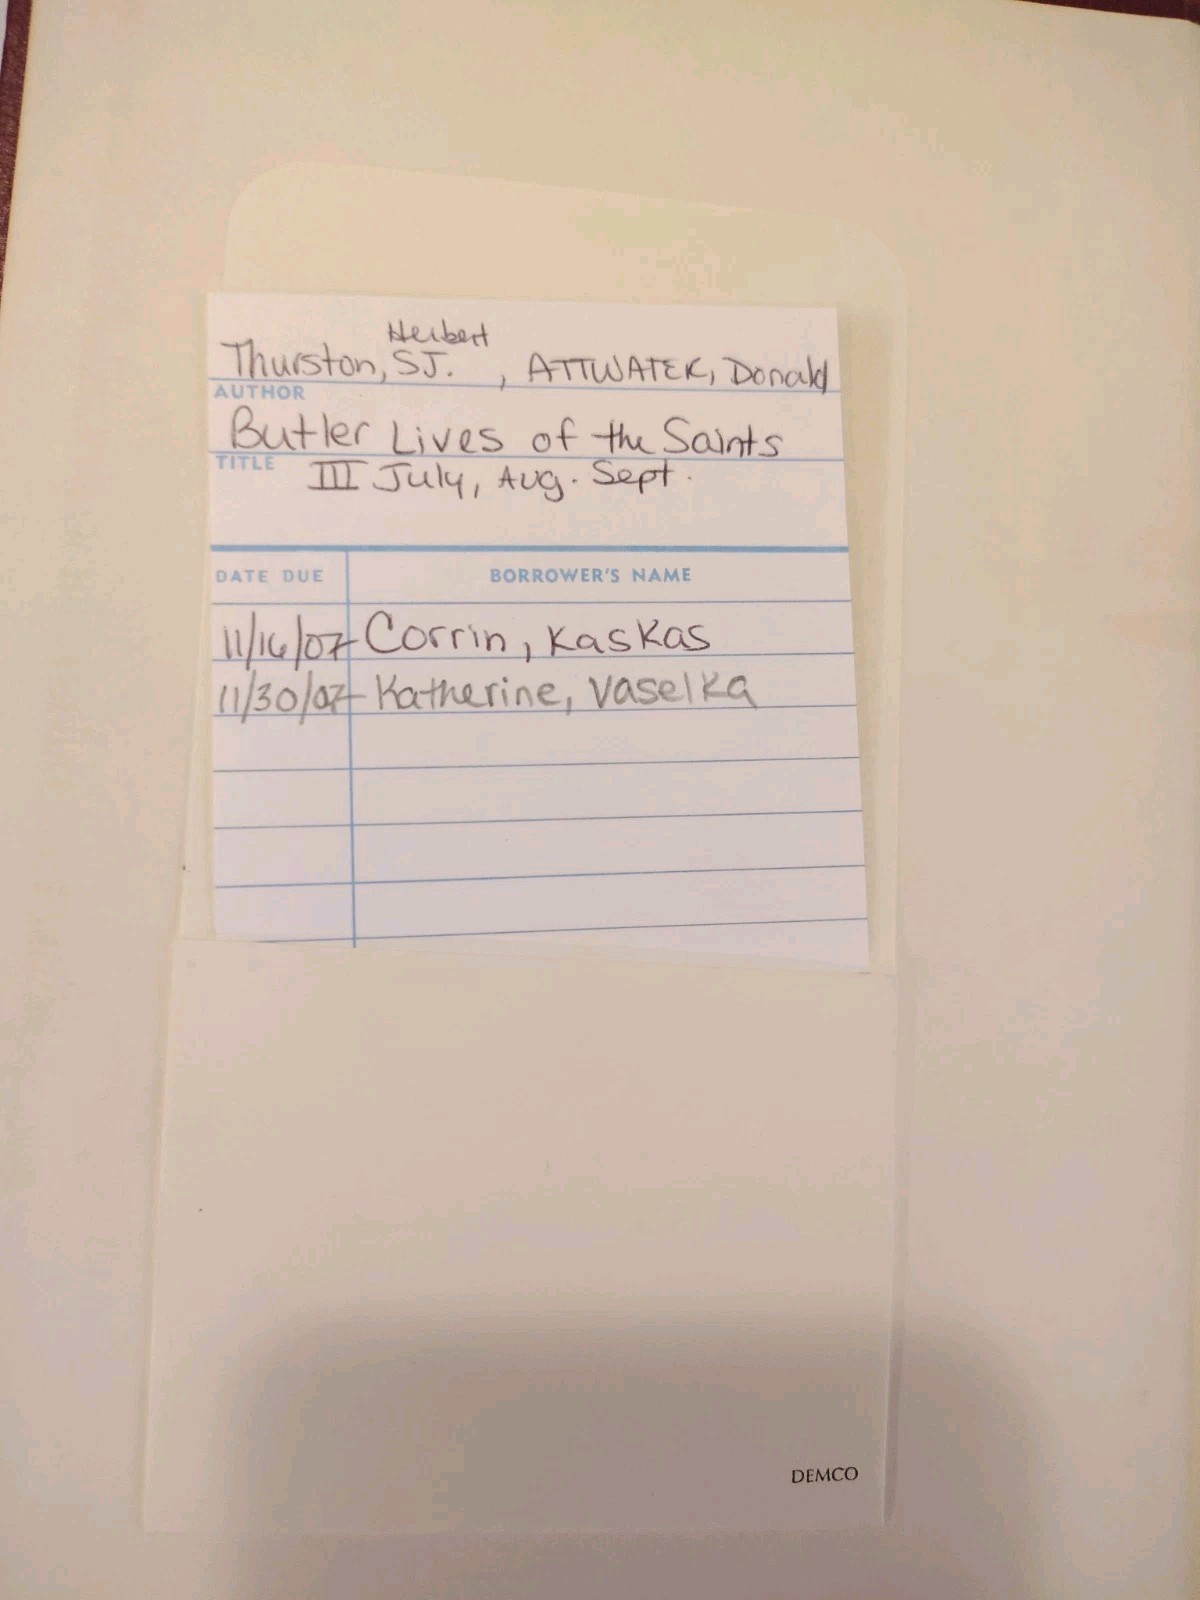 Herbert
Thurston, SJ. , ATTWATER, Donald
AUTHOR
Butler Lives of the Saints
TITLE
III July, Aug. Sept.
DATE DUE BORROWER'S NAME
11/16/07 Corrin, Kaskas
11/30/07 Katherine, Vaselka
DEMCO